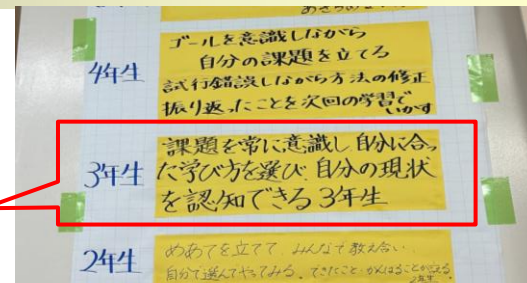 4年生
ゴールを意識しながら
自分の課題を立てる
試行錯誤しながら方法の修正
振り返ったことを次回の学習で
いかす
3年生
課題を常に意識し自分に合っ
た学び方を選び、自分の現状
を認知できる3年生
2年生
めあてを立てて、みんなで教え合い
自分で選んでやってみる。できたこと・がんばることが言える
2年生